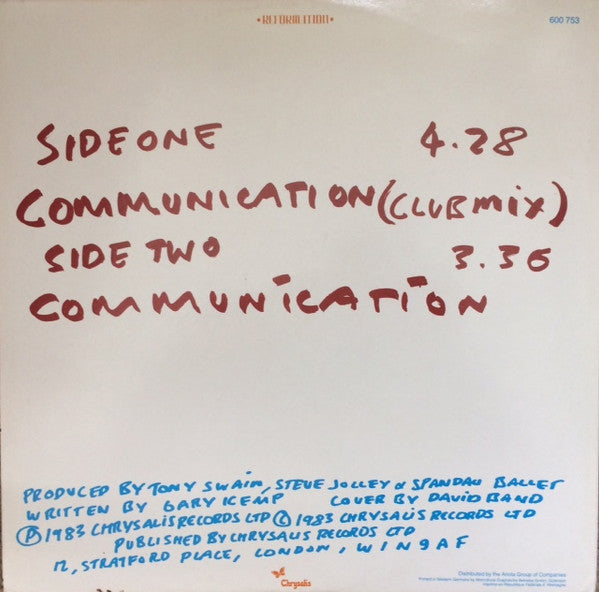 •REFORMATION•
600 753
SIDE ONE 4.28
COMMUNICATION (CLUB MIX)
SIDE TWO 3.36
COMMUNICATION
PRODUCED BY TONY SWAIN, STEVE JOLLEY & SPANDAU BALLET
WRITTEN BY GARY KEMP COVER BY DAVID BAND
Ⓟ 1983 CHRYSALIS RECORDS LTD © 1983 CHRYSALIS RECORDS LTD
PUBLISHED BY CHRYSALIS RECORDS LTD
12, STRATFORD PLACE, LONDON, W1N 9AF
Chrysalis
Distributed by the Ariola Group of Companies